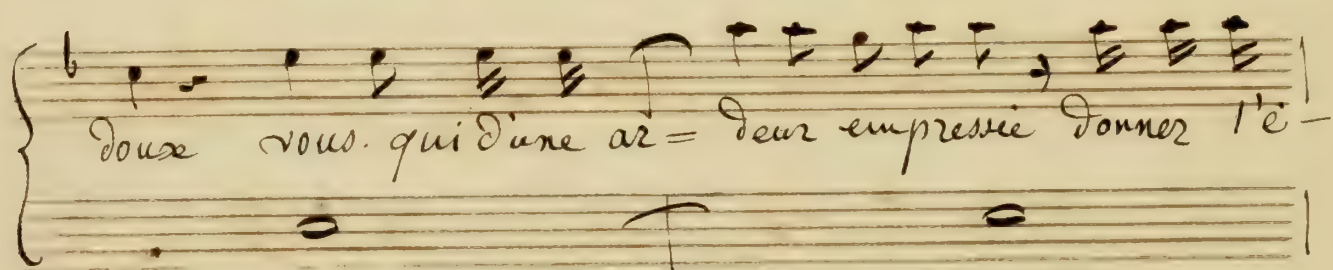 doux vous. qui d'une ar= deur empressée donner l'é-